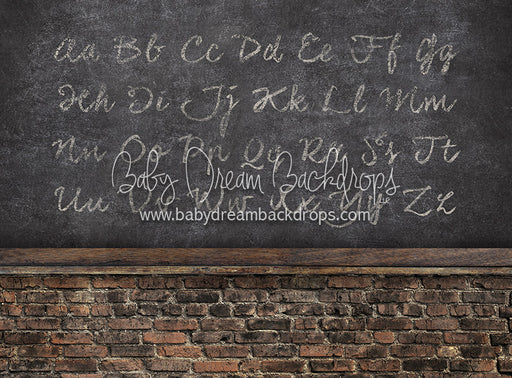 Aa Bb Cc Dd Ee Ff Gg
Hh Ii Jj Kk Ll Mm
Nn Oo Pp Qq Rr Ss Tt
Baby Dream Backdrops
Uu Vv Ww Xx Yy Zz
www.babydreambackdrops.com